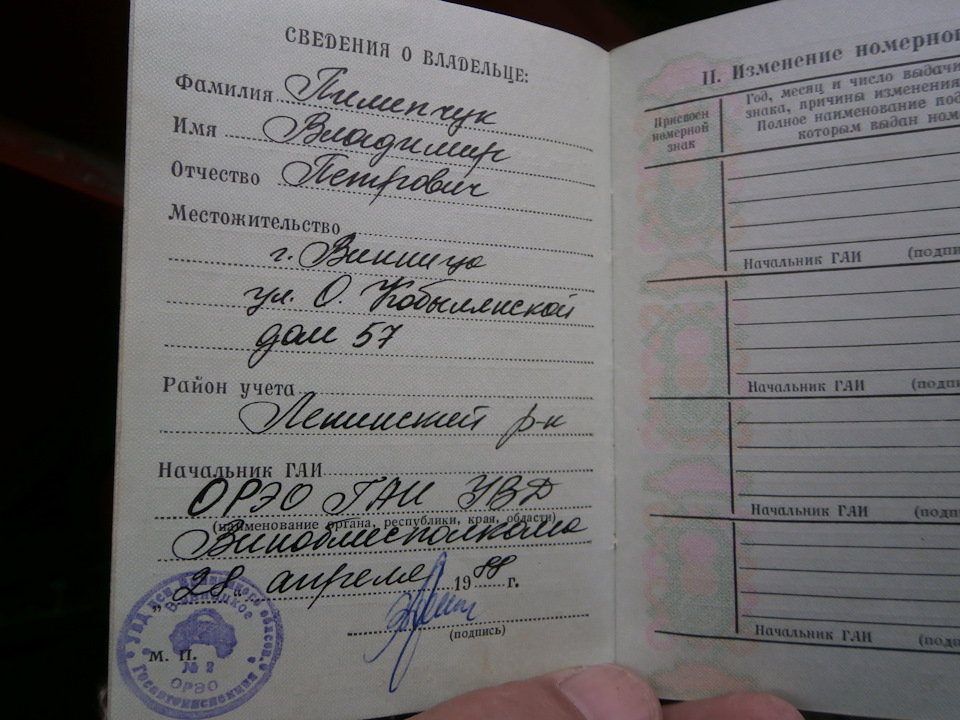 СВЕДЕНИЯ О ВЛАДЕЛЬЦЕ:
Фамилия Пименчук
Имя Владимир
Отчество Петрович
Местожительство
г. Винница
ул. О. Кобылянской
дом 57
Район учета
Ленинский р-н
Начальник ГАИ
ОРЭО ГАИ УВД
(наименование органа, республики, края, области)
Виноблисполкома
„28“ апреля 1988 г.
(подпись)
М. П.
Винницкое
№ 2
ОРЭО
Госавтоинспекция
II. Изменение
Присвоен
номерной
знак
Год, месяц и число выдачи
знака, причины изменения
Полное наименование
которым выдан
Начальник ГАИ
Начальник ГАИ
Начальник ГАИ
Начальник ГАИ